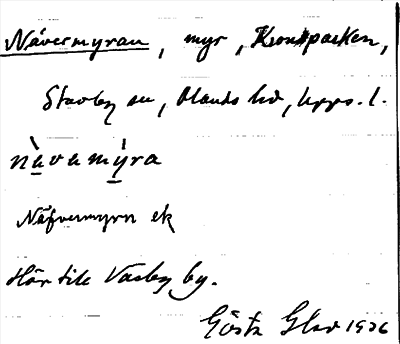 Nävermyran, myr, Kronparken,
Stavby sn, Olands hd, Upps. l.
nàvamýra
Näfvermyrn ek
Hör till Vasby by.
Gösta Glad 1926